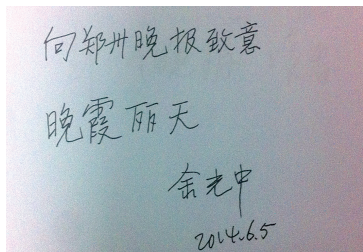 向郑州晚报致意
晚霞丽天
余光中
2014.6.5